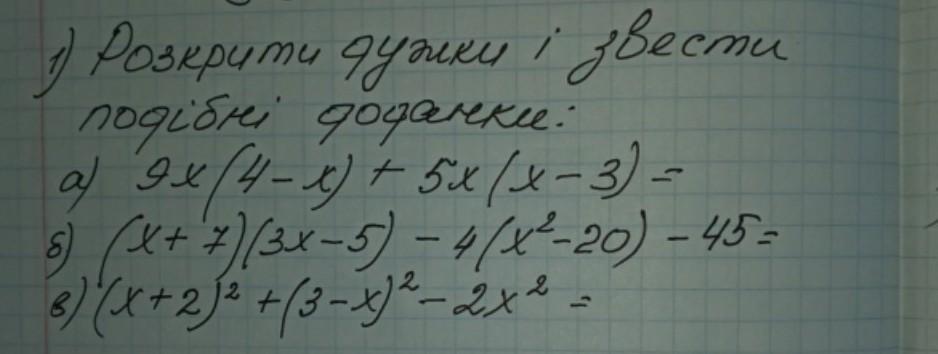 1) Розкрити дужки і звести
подібні доданки:
а) 9x(4-x) + 5x(x-3) =
б) (x+7)(3x-5) - 4(x²-20) - 45=
в) (x+2)² + (3-x)² - 2x² =